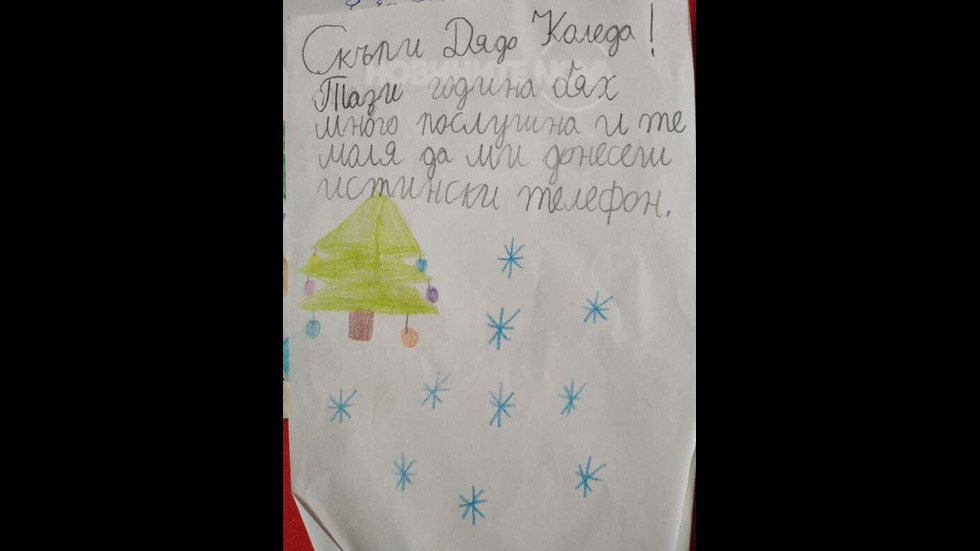 Скъпи Дядо Коледа!
Тази година бях
много послушна и те
моля да ми донесеш
истински телефон.
НОВИНИТЕ NOVA